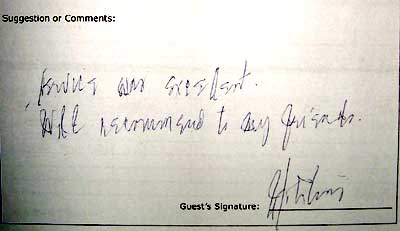 Suggestion or Comments:
Service was excellent.
Will recommend to my friends.
Guest's Signature: